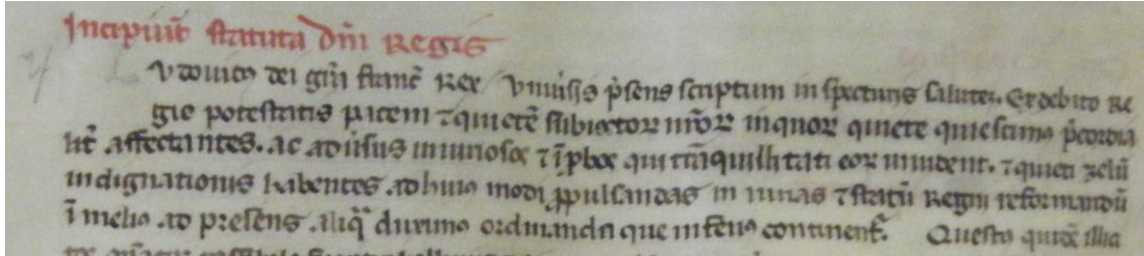 Incipiūt statuta dn̄i Regis
udouicꝰ dei gr̄a franc̄ Rex vniuersis p̄sens scriptum inspecturis salutē. Ex debito Re
gie potestatis pacem ⁊ quietē subiectoꝝ nr̄oꝝ in quoꝝ quiete quiescimꝰ p̄cordia
lit̄ affectantes. ac aduersus iniuriosos ⁊ īp̄bos qui tranquillitati eoꝝ inuident. ⁊ quieti zelū
indignationis habentes. ad huiꝰ modi ꝓpulsandas iniurias ⁊ statū Regni reformandū
ī meliꝰ ad presens. aliqᷓ duximꝰ ordinanda que inferiꝰ continent᷑. Questꝰ quidē